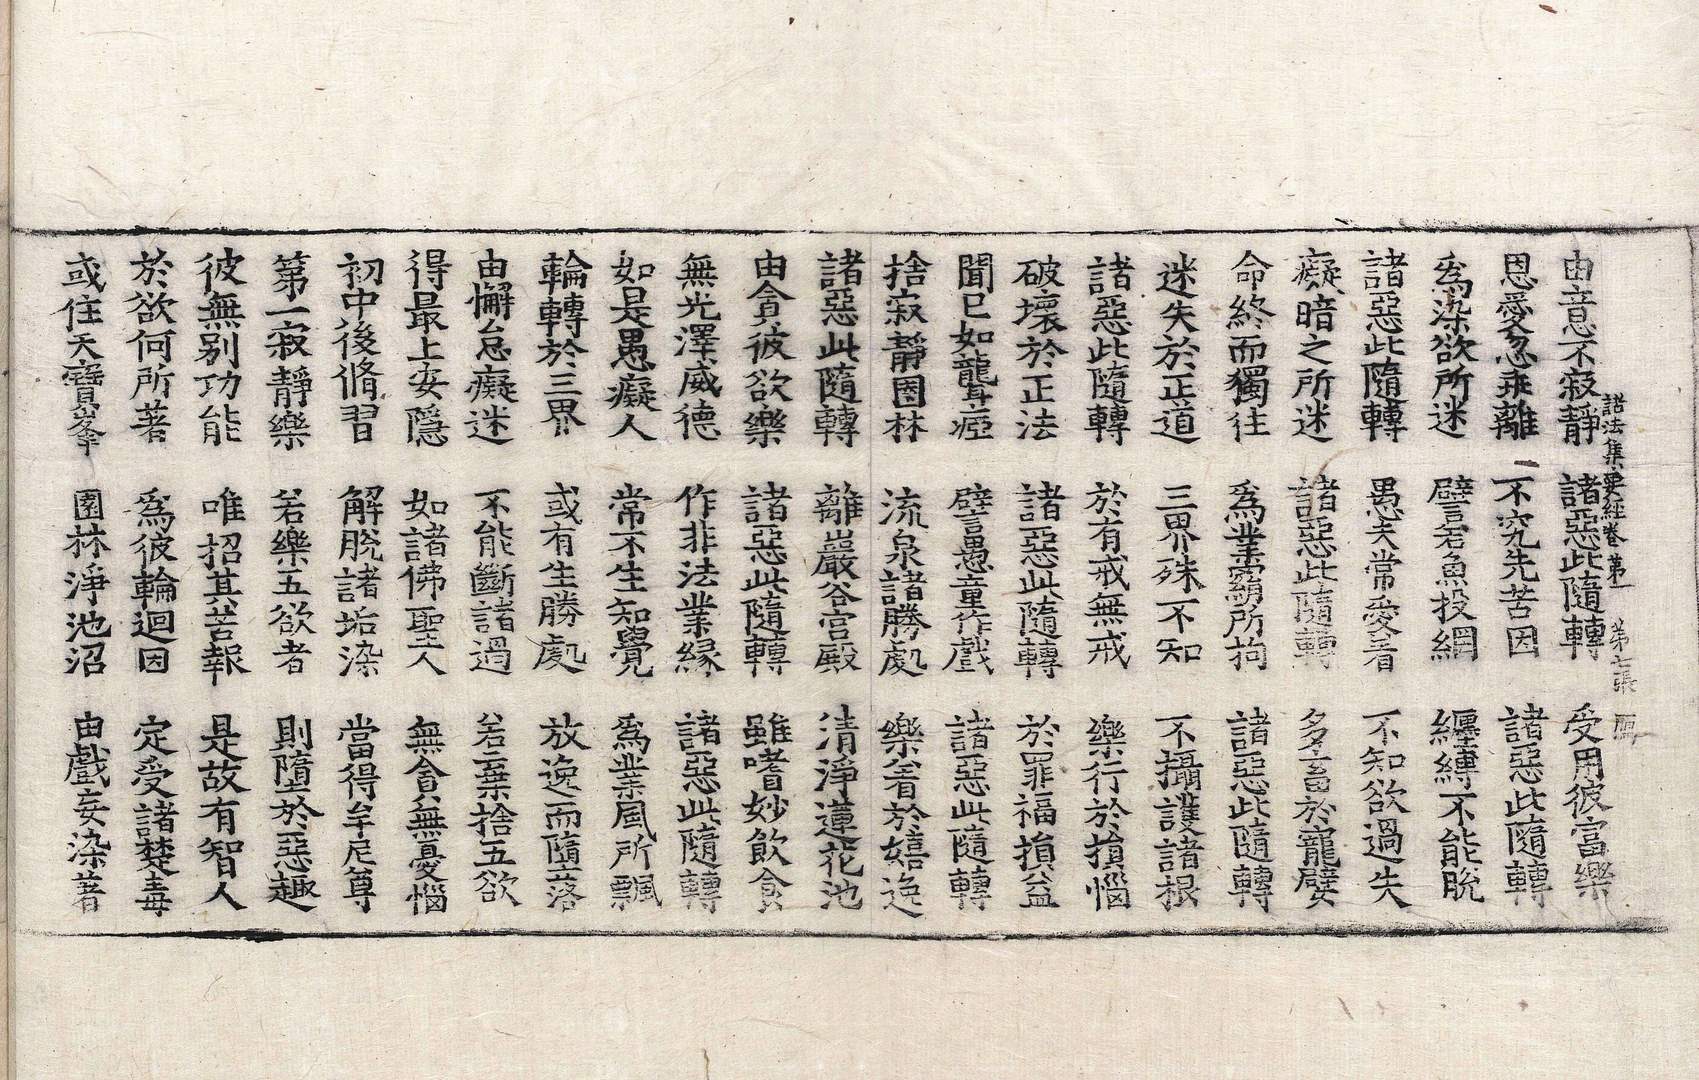 諸法集要經卷第一 第七張 㒵
由意不寂靜 諸惡此隨轉 受用彼富樂
恩愛忽乖離 不究先苦因 諸惡此隨轉
爲染欲所迷 譬若魚投網 纏縛不能脫
諸惡此隨轉 愚夫常愛著 不知欲過失
癡暗之所迷 諸惡此隨轉 多畜於寵嬖
命終而獨往 爲業羂所拘 諸惡此隨轉
迷失於正道 三界殊不知 不攝護諸根
諸惡此隨轉 於有戒無戒 樂行於損惱
破壞於正法 諸惡此隨轉 於罪福損益
聞已如聾瘂 譬愚童作戲 諸惡此隨轉
捨寂靜園林 流泉諸勝處 樂著於嬉逸
諸惡此隨轉 離巖谷宮殿 清淨蓮花池
由貪彼欲樂 諸惡此隨轉 雖嗜妙飲食
無光澤威德 作非法業緣 諸惡此隨轉
如是愚癡人 常不生知覺 爲業風所飄
輪轉於三界 或有生勝處 放逸而隨落
由懈怠癡迷 不能斷諸過 若棄捨五欲
得最上安隱 如諸佛聖人 無貪無憂惱
初中後脩習 解脫諸垢染 當得牟尼尊
第一寂靜樂 若樂五欲者 則墮於惡趣
彼無別功能 唯招其苦報 是故有智人
於欲何所著 爲彼輪迴因 定受諸楚毒
或住天寶峯 園林淨池沼 由戲妄染著